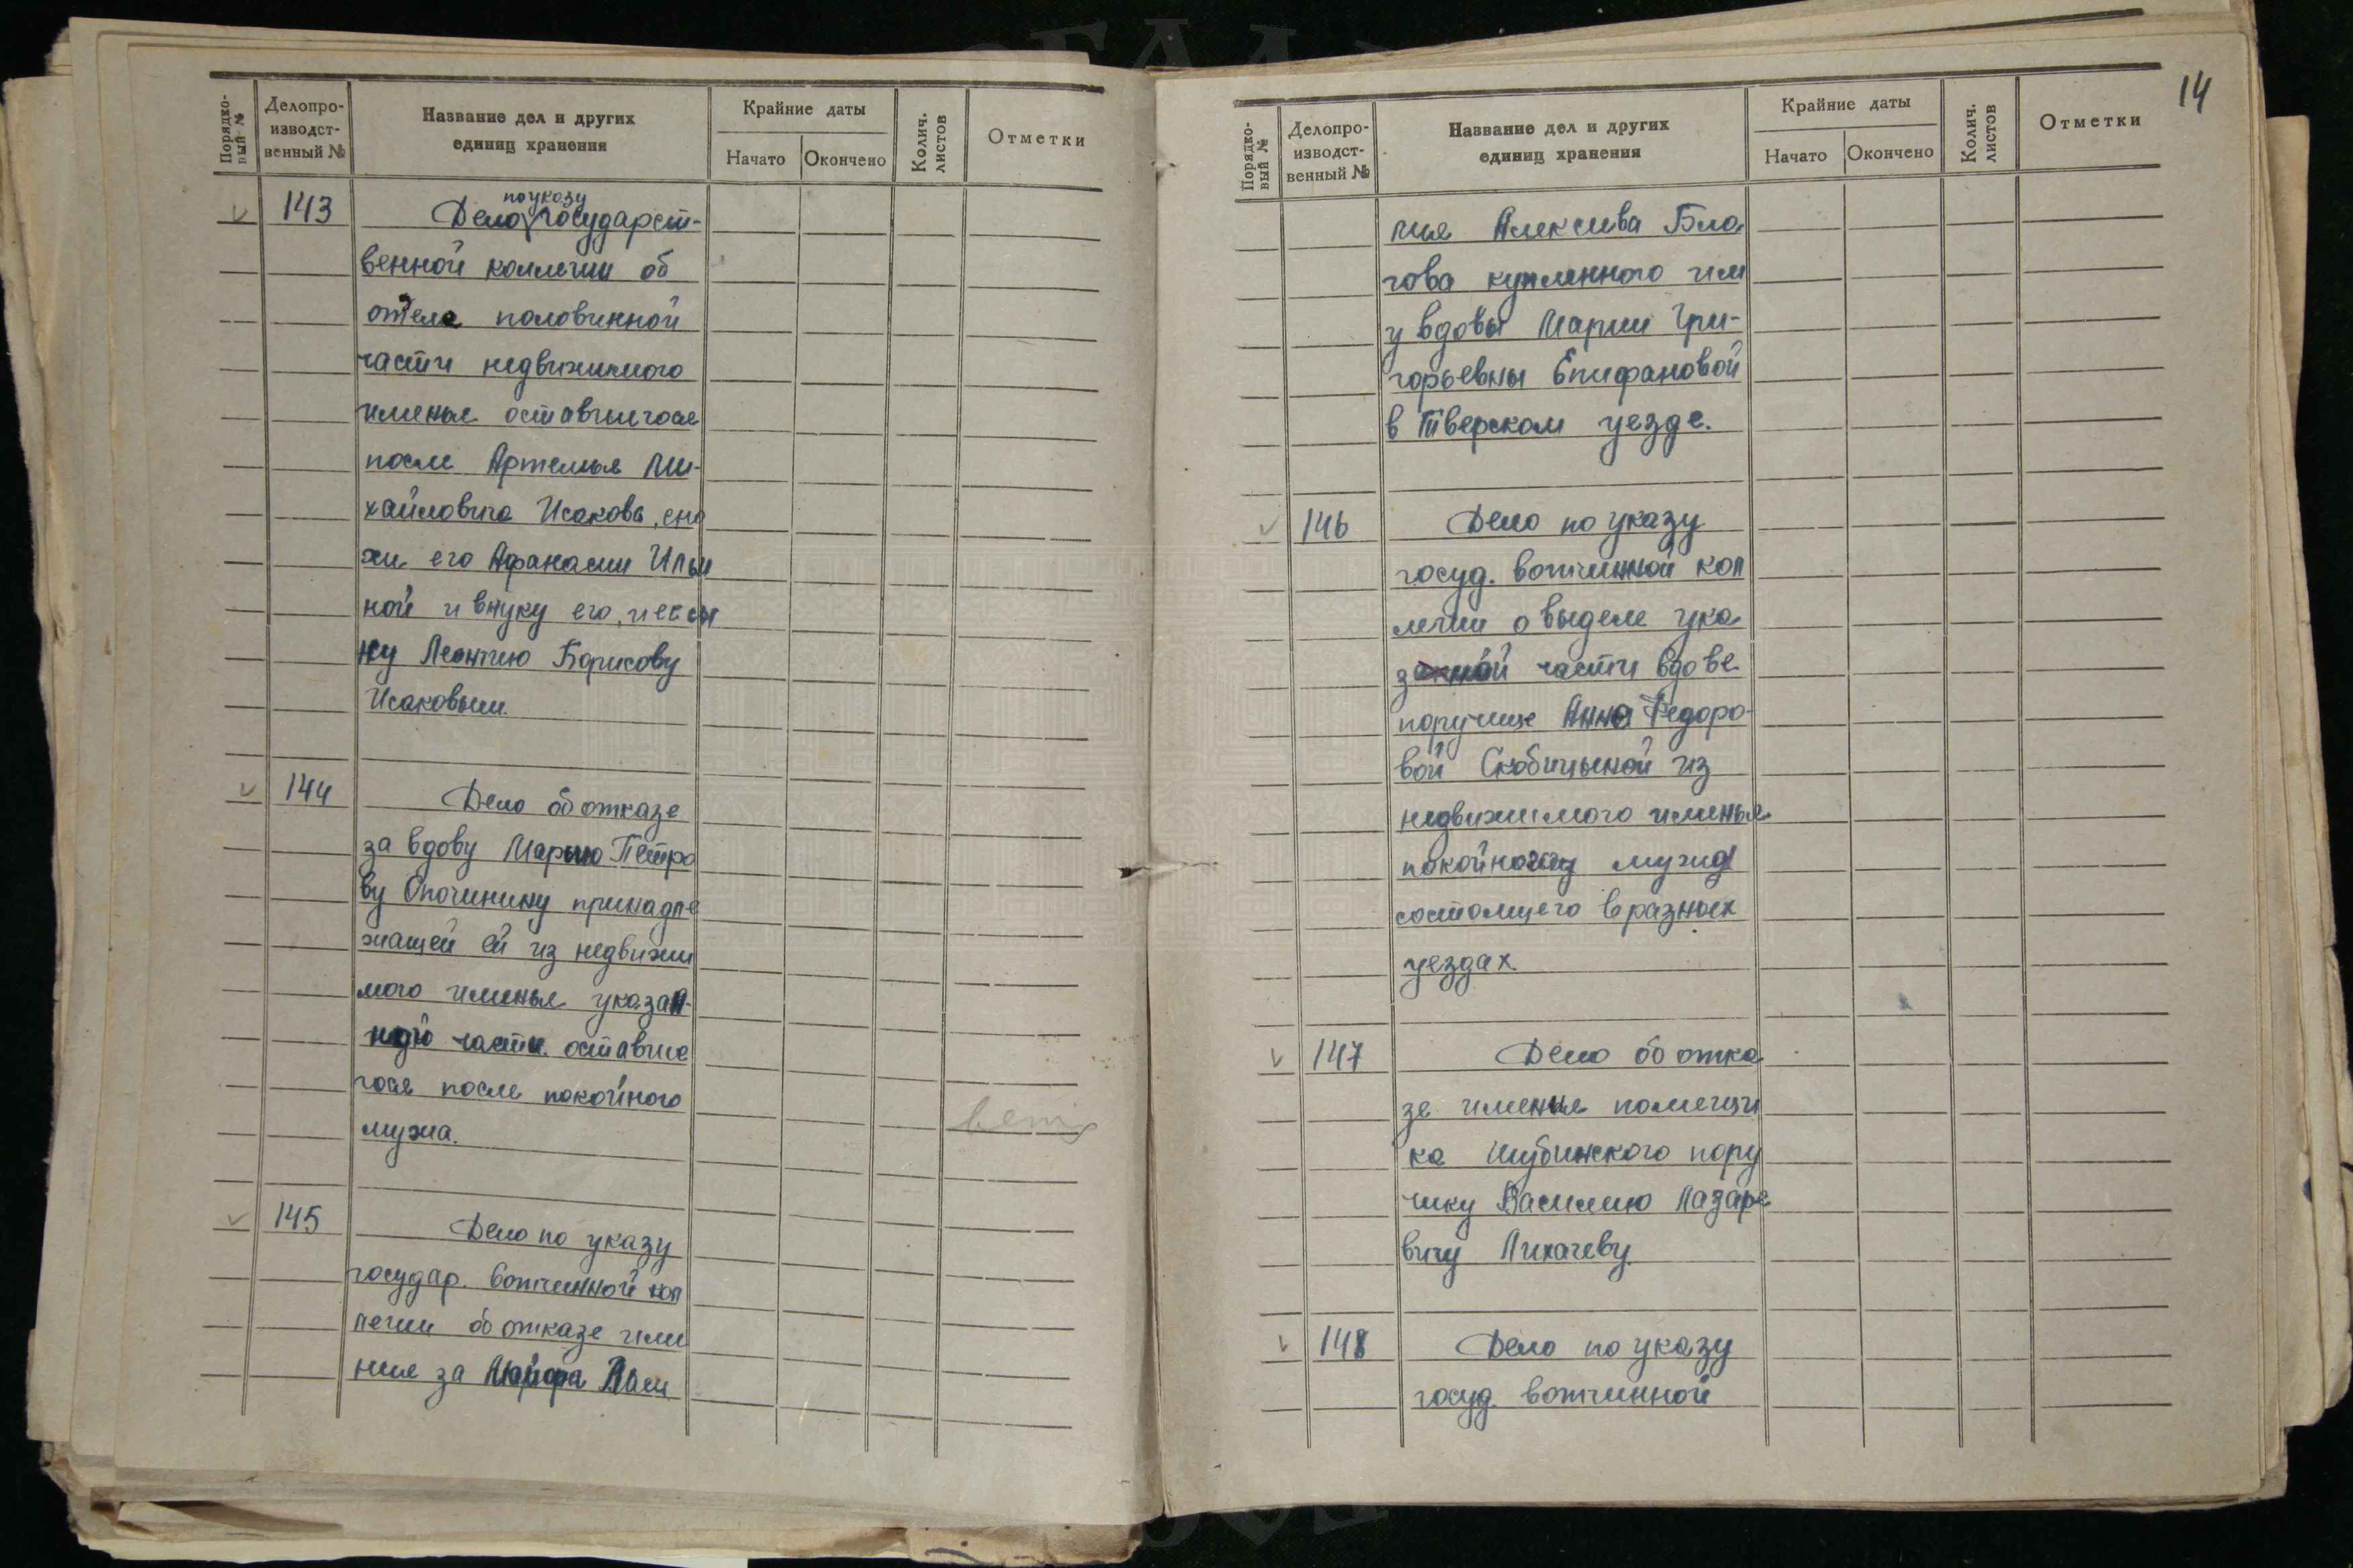 Порядко-
вый №
Делопро-
изводст-
венный №
Название дел и других
единиц хранения
Крайние даты
Начато
Окончено
Колич.
листов
Отметки
143
по указу
Дело государст-
венной коллегии об
отделе половинной
части недвижимого
именья оставшегося
после Артемья Ми-
хайловича Исакова, сно
хи его Афанасии Ильи
ной и внуку его, и ее сы
ну Леонтию Борисову
Исаковым.
144
Дело об отказе
за вдову Марию Петро
ву Опочинину принадле
жащей ей из недвижи
мого именья указан-
ной части оставше
гося после покойного
мужа.
145
Дело по указу
государ. вотчинной кол
легии об отказе име
ния за Майора
14
Порядко-
вый №
Делопро-
изводст-
венный №
Название дел и других
единиц хранения
Крайние даты
Начато
Окончено
Колич.
листов
Отметки
лья Алексеева Бла
гова купленного им
у вдовы Марии Гри-
горьевны Епифановой
в Тверском уезде.
146
Дело по указу
госуд. вотчинной кол
легии о выделе ука
занной части вдове
поручице Анна Федоро-
вой Скобицыной из
недвижимого именья
покойного мужа
состоящего в разных
уездах.
147
Дело об отка
зе именья помещи
ка Шубинского пору
чику Василию Лазаре
вичу Лихачеву.
148
Дело по указу
госуд. вотчинной